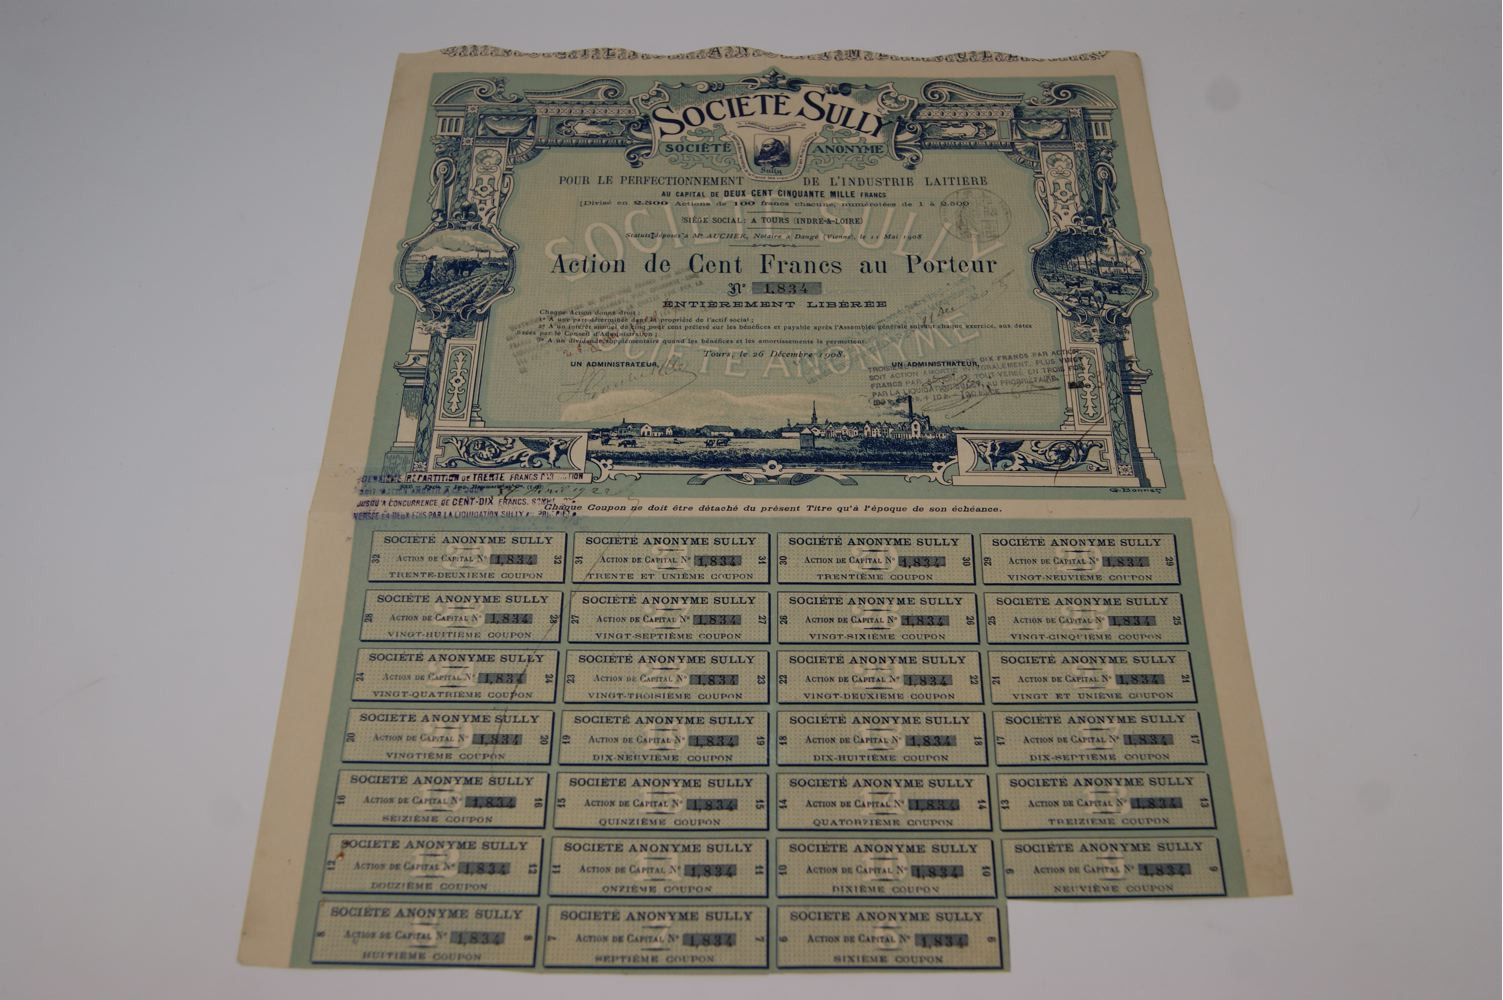 SOCIÉTÉ SULLY
SOCIÉTÉ ANONYME
Sully
POUR LE PERFECTIONNEMENT DE L'INDUSTRIE LAITIÈRE
AU CAPITAL DE DEUX CENT CINQUANTE MILLE FRANCS
Divisé en 2.500 Actions de 100 francs chacune, numérotées de 1 à 2.500
SIÈGE SOCIAL: A TOURS (INDRE-&-LOIRE)
Statuts déposés à Me AUCHER, Notaire à Dangé (Vienne), le 11 Mai 1908
SOCIÉTÉ SULLY
Action de Cent Francs au Porteur
No 1,834
ENTIÈREMENT LIBÉRÉE
Chaque Action donne droit :
1o A une part déterminée dans la propriété de l'actif social ;
2o A un intérêt annuel de cinq pour cent prélevé sur les bénéfices et payable après l'Assemblée générale suivant chaque exercice, aux dates
fixées par le Conseil d'Administration ;
3o A un dividende supplémentaire quand les bénéfices et les amortissements le permettent.
SOCIÉTÉ ANONYME
Tours, le 26 Décembre 1908.
UN ADMINISTRATEUR, UN ADMINISTRATEUR,
DE DIX FRANCS PAR ACTION
SOIT ACTION PLUS VINGT
FRANCS PAR EN TROIS FOIS
PAR LA LIQUIDATION AU PROPRIÉTAIRE
G. Bonnet
DEUXIÈME RÉPARTITION DE TRENTE FRANCS PAR ACTION
JUSQU'A CONCURRENCE DE CENT-DIX FRANCS.
VERSÉE EN DEUX FOIS PAR LA LIQUIDATION SULLY
Chaque Coupon ne doit être détaché du présent Titre qu'à l'époque de son échéance.
SOCIÉTÉ ANONYME SULLY SOCIÉTÉ ANONYME SULLY SOCIÉTÉ ANONYME SULLY SOCIÉTÉ ANONYME SULLY
32 ACTION DE CAPITAL No 1,834 32 31 ACTION DE CAPITAL No 1,834 31 30 ACTION DE CAPITAL No 1,834 30 29 ACTION DE CAPITAL No 1,834 29
TRENTE-DEUXIÈME COUPON TRENTE ET UNIÈME COUPON TRENTIÈME COUPON VINGT-NEUVIÈME COUPON
SOCIÉTÉ ANONYME SULLY SOCIÉTÉ ANONYME SULLY SOCIÉTÉ ANONYME SULLY SOCIÉTÉ ANONYME SULLY
28 ACTION DE CAPITAL No 1,834 28 27 ACTION DE CAPITAL No 1,834 27 26 ACTION DE CAPITAL No 1,834 26 25 ACTION DE CAPITAL No 1,834 25
VINGT-HUITIÈME COUPON VINGT-SEPTIÈME COUPON VINGT-SIXIÈME COUPON VINGT-CINQUIÈME COUPON
SOCIÉTÉ ANONYME SULLY SOCIÉTÉ ANONYME SULLY SOCIÉTÉ ANONYME SULLY SOCIÉTÉ ANONYME SULLY
24 ACTION DE CAPITAL No 1,834 24 23 ACTION DE CAPITAL No 1,834 23 22 ACTION DE CAPITAL No 1,834 22 21 ACTION DE CAPITAL No 1,834 21
VINGT-QUATRIÈME COUPON VINGT-TROISIÈME COUPON VINGT-DEUXIÈME COUPON VINGT ET UNIÈME COUPON
SOCIÉTÉ ANONYME SULLY SOCIÉTÉ ANONYME SULLY SOCIÉTÉ ANONYME SULLY SOCIÉTÉ ANONYME SULLY
20 ACTION DE CAPITAL No 1,834 20 19 ACTION DE CAPITAL No 1,834 19 18 ACTION DE CAPITAL No 1,834 18 17 ACTION DE CAPITAL No 1,834 17
VINGTIÈME COUPON DIX-NEUVIÈME COUPON DIX-HUITIÈME COUPON DIX-SEPTIÈME COUPON
SOCIÉTÉ ANONYME SULLY SOCIÉTÉ ANONYME SULLY SOCIÉTÉ ANONYME SULLY SOCIÉTÉ ANONYME SULLY
16 ACTION DE CAPITAL No 1,834 16 15 ACTION DE CAPITAL No 1,834 15 14 ACTION DE CAPITAL No 1,834 14 13 ACTION DE CAPITAL No 1,834 13
SEIZIÈME COUPON QUINZIÈME COUPON QUATORZIÈME COUPON TREIZIÈME COUPON
SOCIÉTÉ ANONYME SULLY SOCIÉTÉ ANONYME SULLY SOCIÉTÉ ANONYME SULLY SOCIÉTÉ ANONYME SULLY
12 ACTION DE CAPITAL No 1,834 12 11 ACTION DE CAPITAL No 1,834 11 10 ACTION DE CAPITAL No 1,834 10 9 ACTION DE CAPITAL No 1,834 9
DOUZIÈME COUPON ONZIÈME COUPON DIXIÈME COUPON NEUVIÈME COUPON
SOCIÉTÉ ANONYME SULLY SOCIÉTÉ ANONYME SULLY SOCIÉTÉ ANONYME SULLY
8 ACTION DE CAPITAL No 1,834 8 7 ACTION DE CAPITAL No 1,834 7 6 ACTION DE CAPITAL No 1,834 6
HUITIÈME COUPON SEPTIÈME COUPON SIXIÈME COUPON